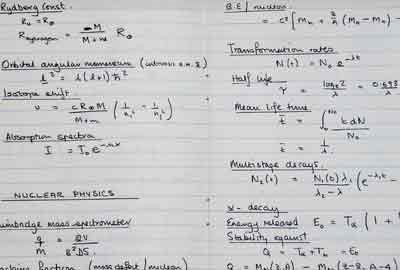 Rydberg Const.
R₀ = R∞
R_hydrogen = M / (M + m) R∞
Orbital angular momentum
l² = l(l+1)ħ²
Isotope shift.
υ = cR∞M / (M+m) (1/n₁² - 1/n₂²)
Absorption spectra
I = I₀e
NUCLEAR PHYSICS
Bainbridge mass spectrometer
q/M = 2V / B²DS.
fraction (mass defect / nucleon)
B.E / nucleon
= c² [Mₙ + Z/A (Mₙ - Mₙ) -
Transformation rates
N(t) = N₀ e^-λt
Half life
τ = logₑ2 / λ = 0.693 / λ
Mean life time
t̄ = ∫₀^N₀ t dN / N₀
t̄ = 1/λ
Multistage decays.
N₂(t) = N₁(0) λ₁ / (λ₂ - λ₁) (e^-λ₁t -
α - decay
Energy released E₀ = Tα (1 +
Stability against
Q = Tα + Tₕ = E₀
Q = (Z, A) - (Z-2, A-4)